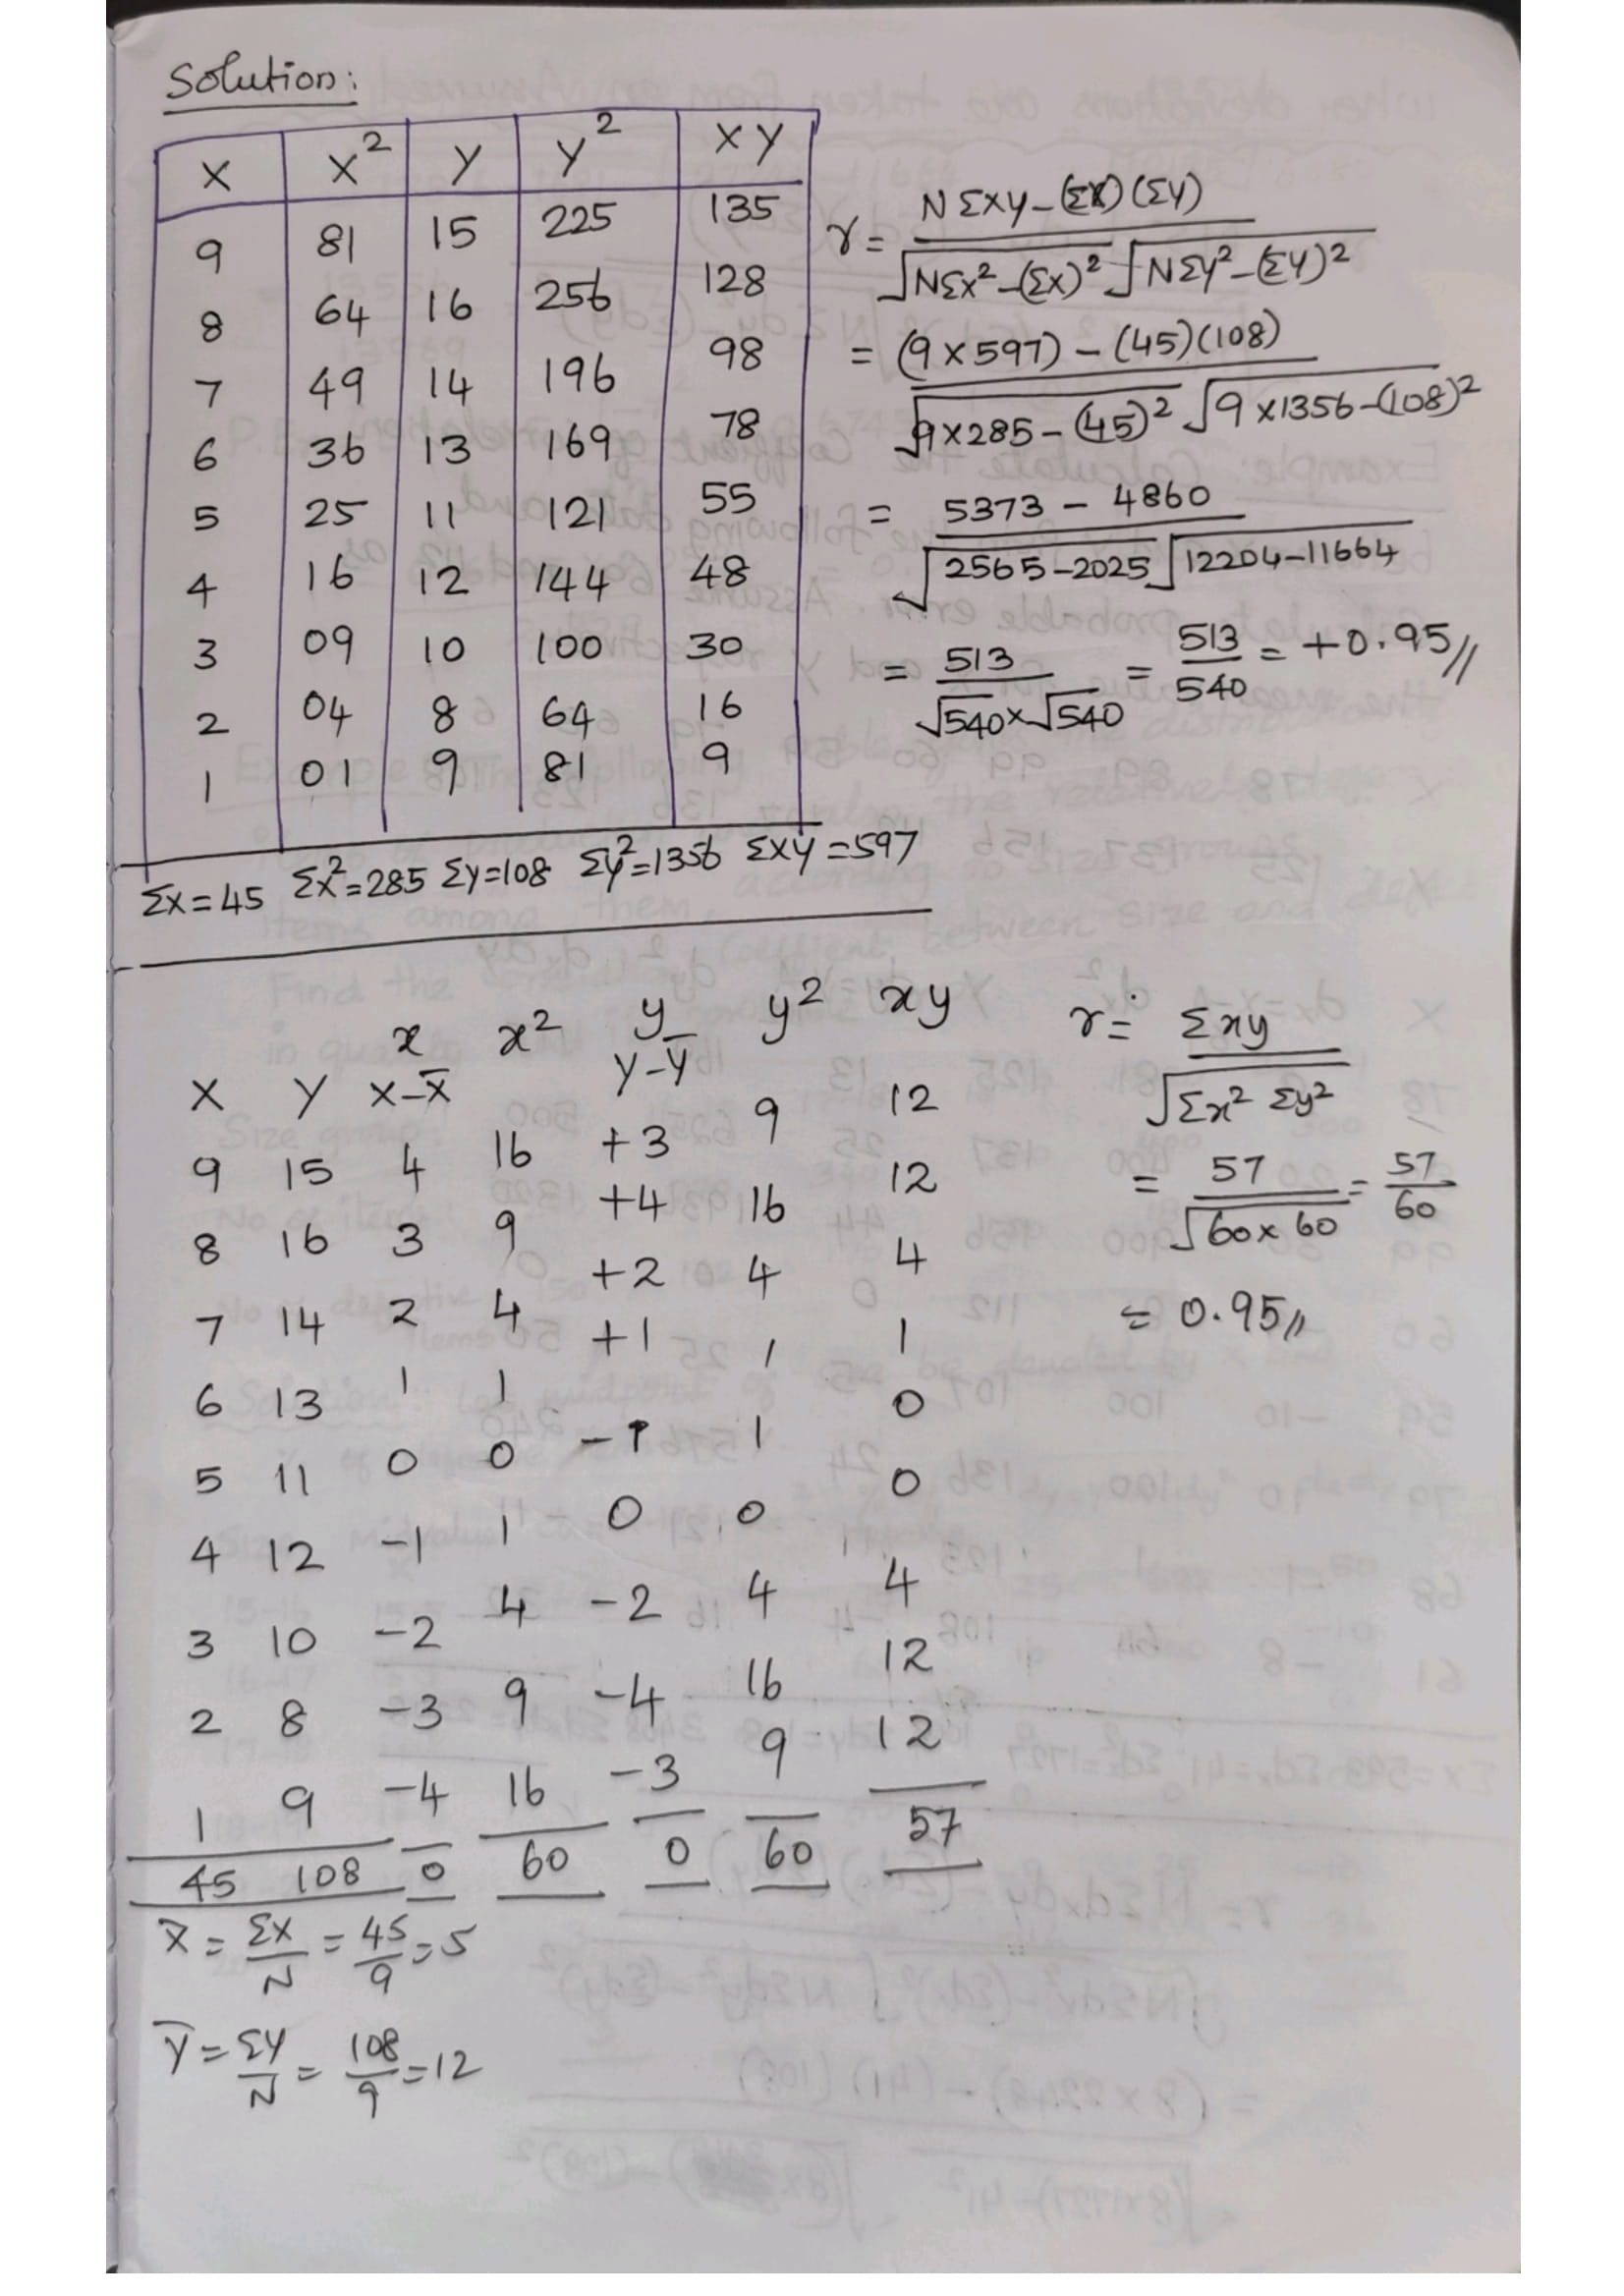 Solution:
X X² Y Y² XY
9 81 15 225 135
8 64 16 256 128
7 49 14 196 98
6 36 13 169 78
5 25 11 121 55
4 16 12 144 48
3 09 10 100 30
2 04 8 64 16
1 01 9 81 9
ΣX=45 ΣX²=285 ΣY=108 ΣY²=1356 ΣXY=597
r = NΣXY-(ΣX)(ΣY) / √NΣX²-(ΣX)² √NΣY²-(ΣY)²
= (9×597) - (45)(108) / √9×285-(45)² √9×1356-(108)²
= 5373 - 4860 / √2565-2025 √12204-11664
= 513 / √540×√540 = 513/540 = +0.95//
x x² y y² xy
X Y X-X̄ Y-Ȳ
9 15 4 16 +3 9 12
8 16 3 9 +4 16 12
7 14 2 4 +2 4 4
6 13 1 1 +1 1 1
5 11 0 0 -1 1 0
4 12 -1 1 0 0 0
3 10 -2 4 -2 4 4
2 8 -3 9 -4 16 12
1 9 -4 16 -3 9 12
45 108 0 60 0 60 57
r = Σxy / √Σx² Σy²
= 57 / √60×60 = 57/60
= 0.95//
X̄ = ΣX/N = 45/9 = 5
Ȳ = ΣY/N = 108/9 = 12